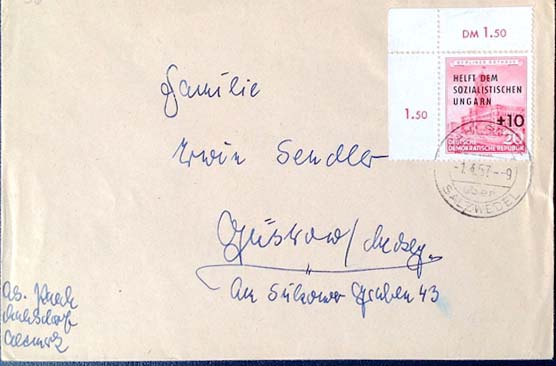 DM 1.50
1.50
BERLINER OSTHAFEN
HELFT DEM
SOZIALISTISCHEN
UNGARN
+10
20
DEUTSCHE
DEMOKRATISCHE REPUBLIK
-1.4.57--9
über
SALZWEDEL
Familie
Erwin Sendler
Güstrow/Meckg.
Am Sukower Graben 43
Abs.